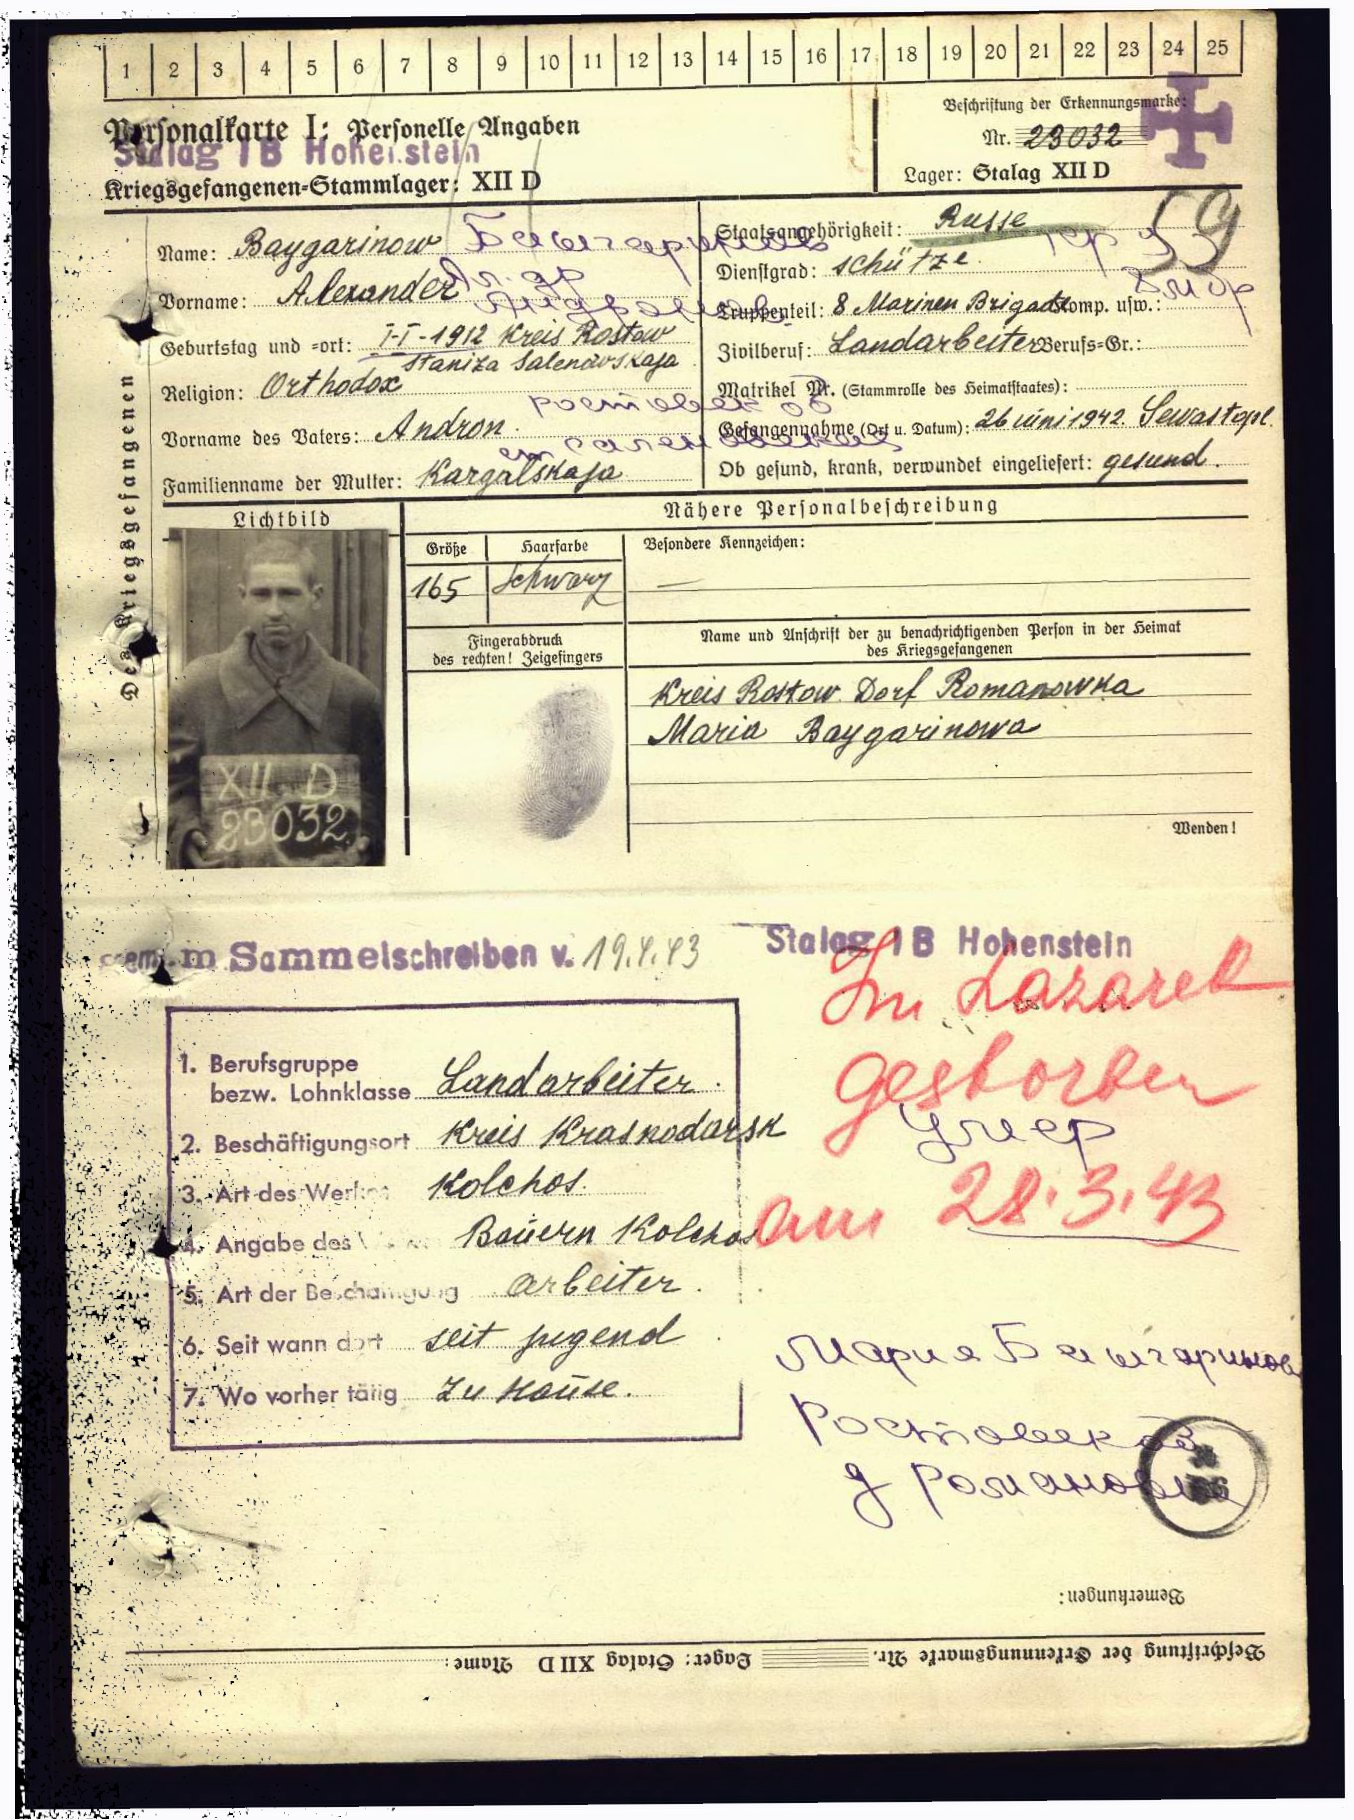 1 2 3 4 5 6 7 8 9 10 11 12 13 14 15 16 17 18 19 20 21 22 23 24 25
Personalkarte I: Personelle Angaben
Stalag I B Hohenstein
Kriegsgefangenen-Stammlager: XII D
Beschriftung der Erkennungsmarke:
Nr. 23032
Lager: Stalag XII D
Des Kriegsgefangenen
Name: Baygarinow
Vorname: Alexander
Geburtstag und -ort: I-I-1912 Kreis Rostow
Staniza Salenowskaja
Religion: Orthodox
Vorname des Vaters: Andron
Familienname der Mutter: Kargalskaja
Staatsangehörigkeit: Russe
59
Dienstgrad: schütze
Truppenteil: 8 Marinen Brigade Komp. usw.:
Zivilberuf: Landarbeiter Berufs-Gr.:
Matrikel Nr. (Stammrolle des Heimatstaates):
Gefangennahme (Ort u. Datum): 26 iuni 1942. Sewastopl
Ob gesund, krank, verwundet eingeliefert: gesund.
Lichtbild
XII D
23032
Nähere Personalbeschreibung
Größe Haarfarbe Besondere Kennzeichen:
165 Schwarz —
Fingerabdruck
des rechten! Zeigefingers
Name und Anschrift der zu benachrichtigenden Person in der Heimat
des Kriegsgefangenen
Kreis Rostow Dorf Romanowka
Maria Baygarinowa
Wenden!
Sammelschreiben v. 19.4.43
Stalag I B Hohenstein
Im Lazarett
gestorben
умер
am 28.3.43
1. Berufsgruppe
bezw. Lohnklasse Landarbeiter.
2. Beschäftigungsort Kreis Krasnodarsk
3. Art des Werkes Kolchos
4. Angabe des Bauern Kolchos
5. Art der Beschäftigung arbeiter.
6. Seit wann dort seit jugend
7. Wo vorher tätig Zu Hause.
Мария Байгаринов
Ростовск об
д Романовка
Bemerkungen:
Beschriftung der Erkennungsmarke Nr. Lager: Stalag XII D Name: